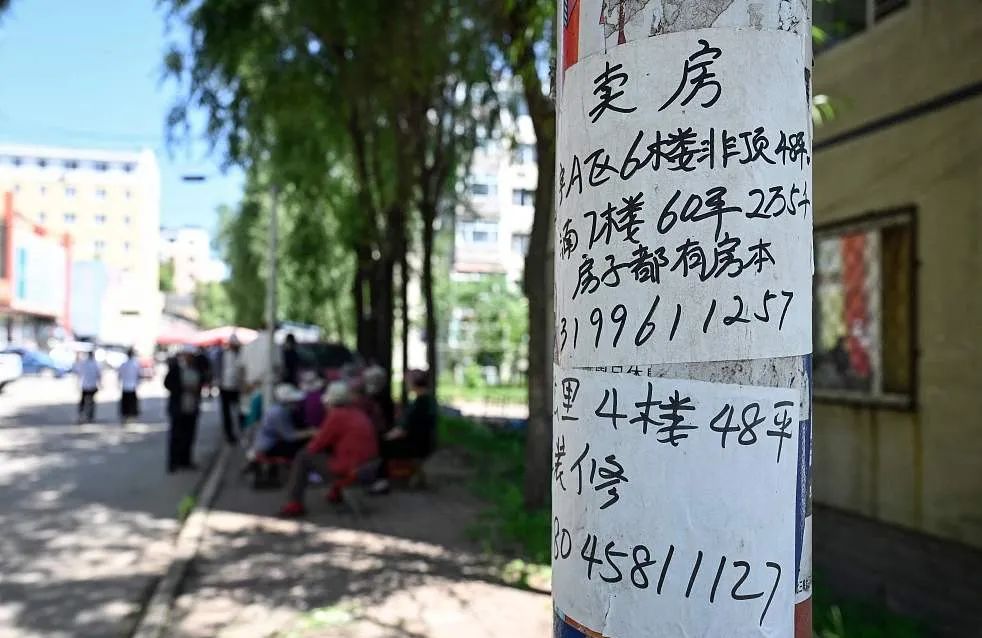 卖房
A区6楼非顶48平
湳7楼60平2万5千
房子都有房本
3199611257
里4楼48平
装修
8045811127